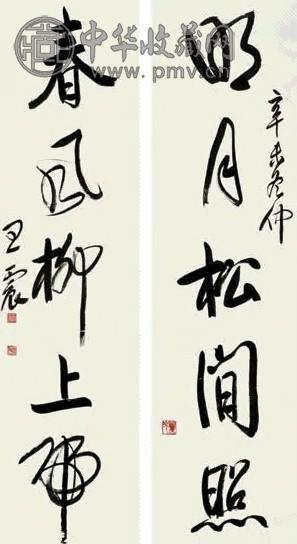 中华收藏网
www.pmv.cn
明月松間照
辛未冬仲
春風柳上歸
王震